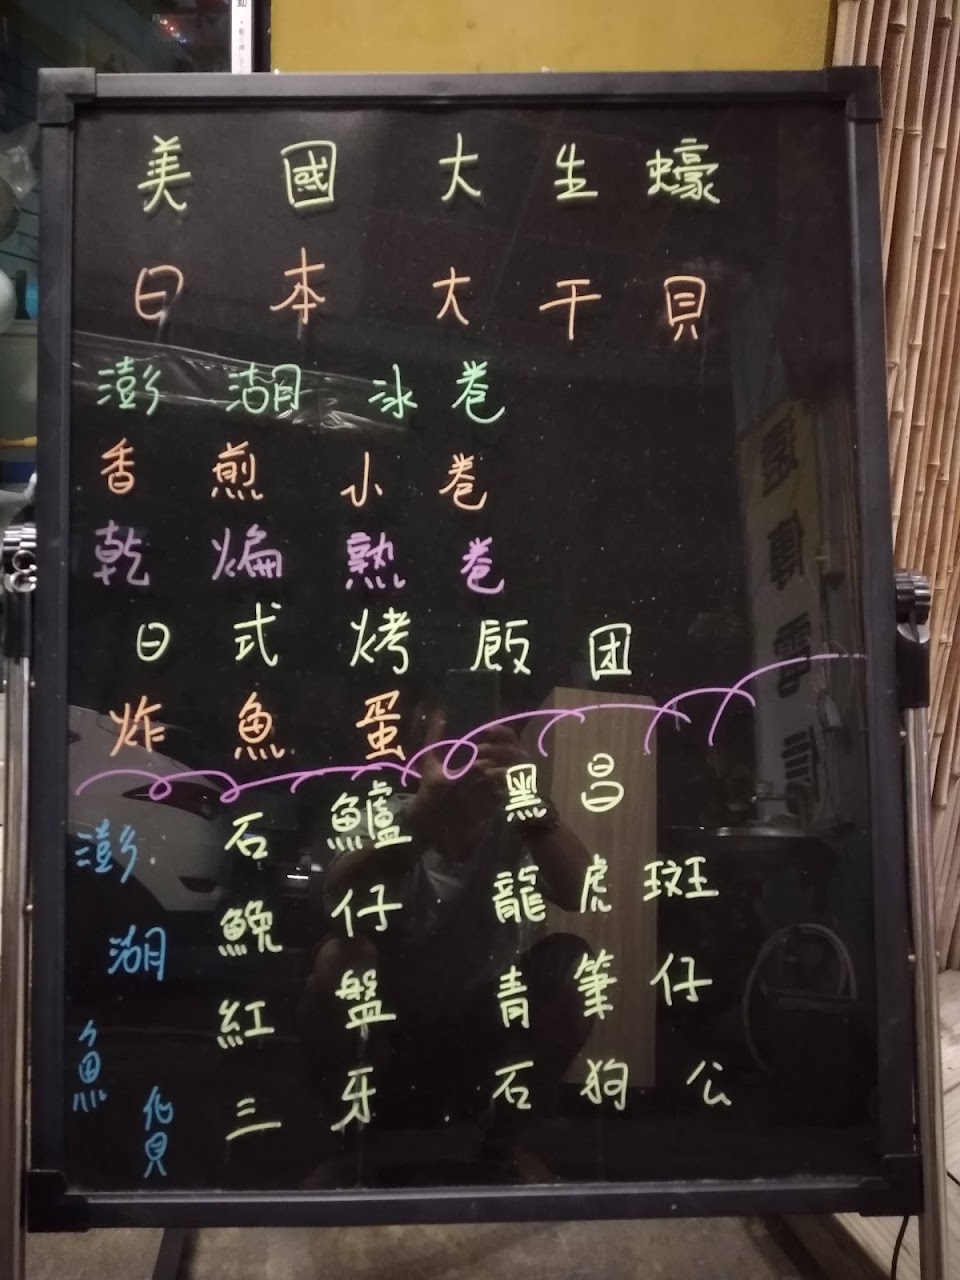 美國大生蠔
日本大干貝
澎湖冰卷
香煎小卷
乾煸熟卷
日式烤飯団
炸魚蛋
澎湖魚貨
石鱸 黑昌
鮸仔 龍虎斑
紅盤 青筆仔
三牙 石狗公
遠傳電信